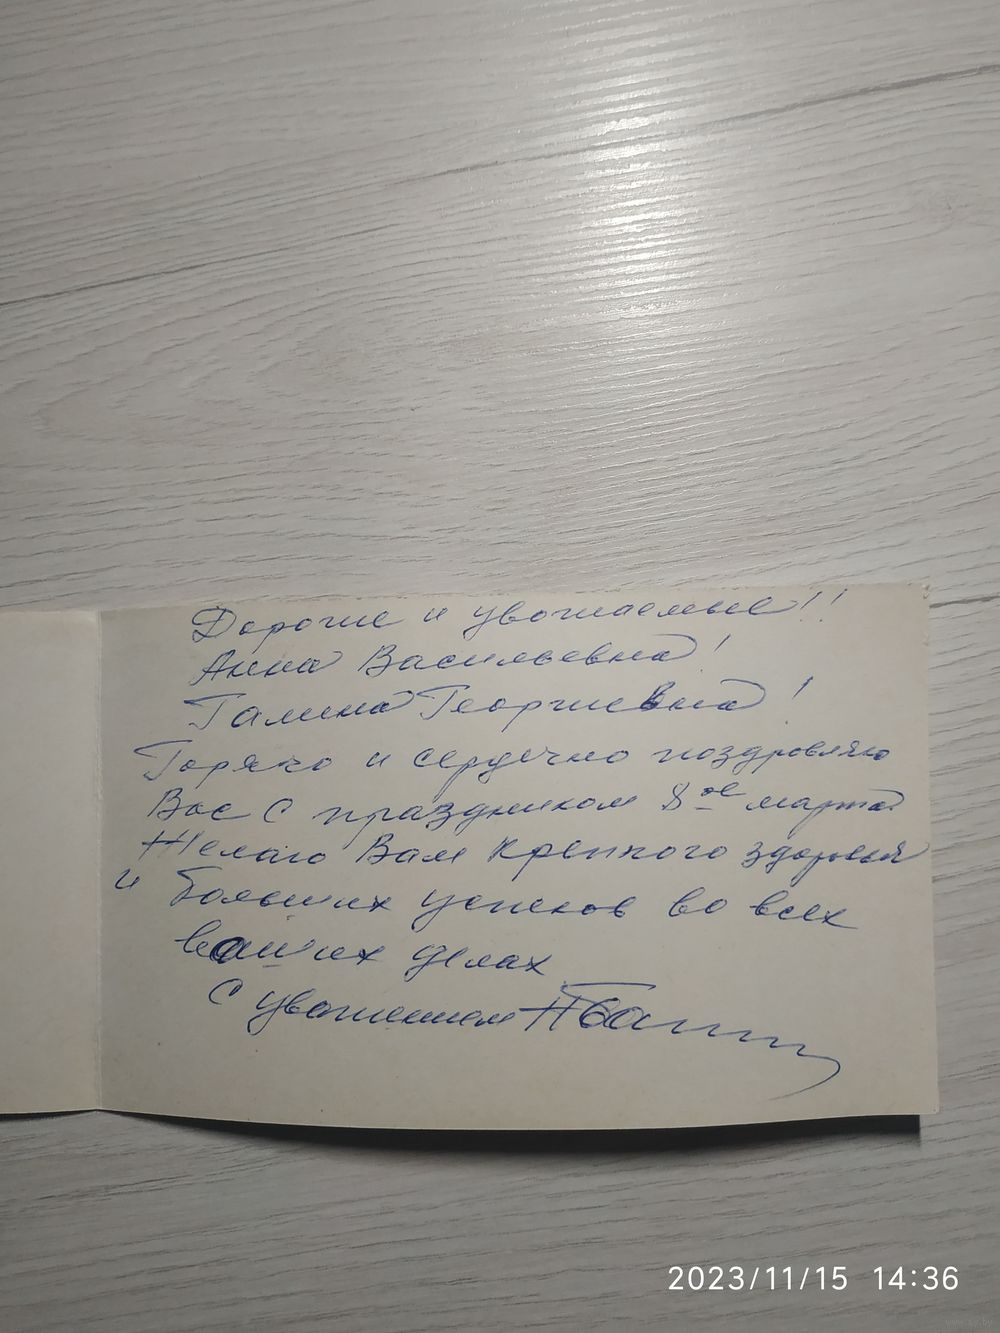 Дорогие и уважаемые!!
Анна Васильевна!
Галина Георгиевна!
Горячо и сердечно поздравляю
Вас с праздником 8ое марта
Желаю Вам крепкого здоровья
и больших успехов во всех
ваших делах
С уважением
2023/11/15 14:36